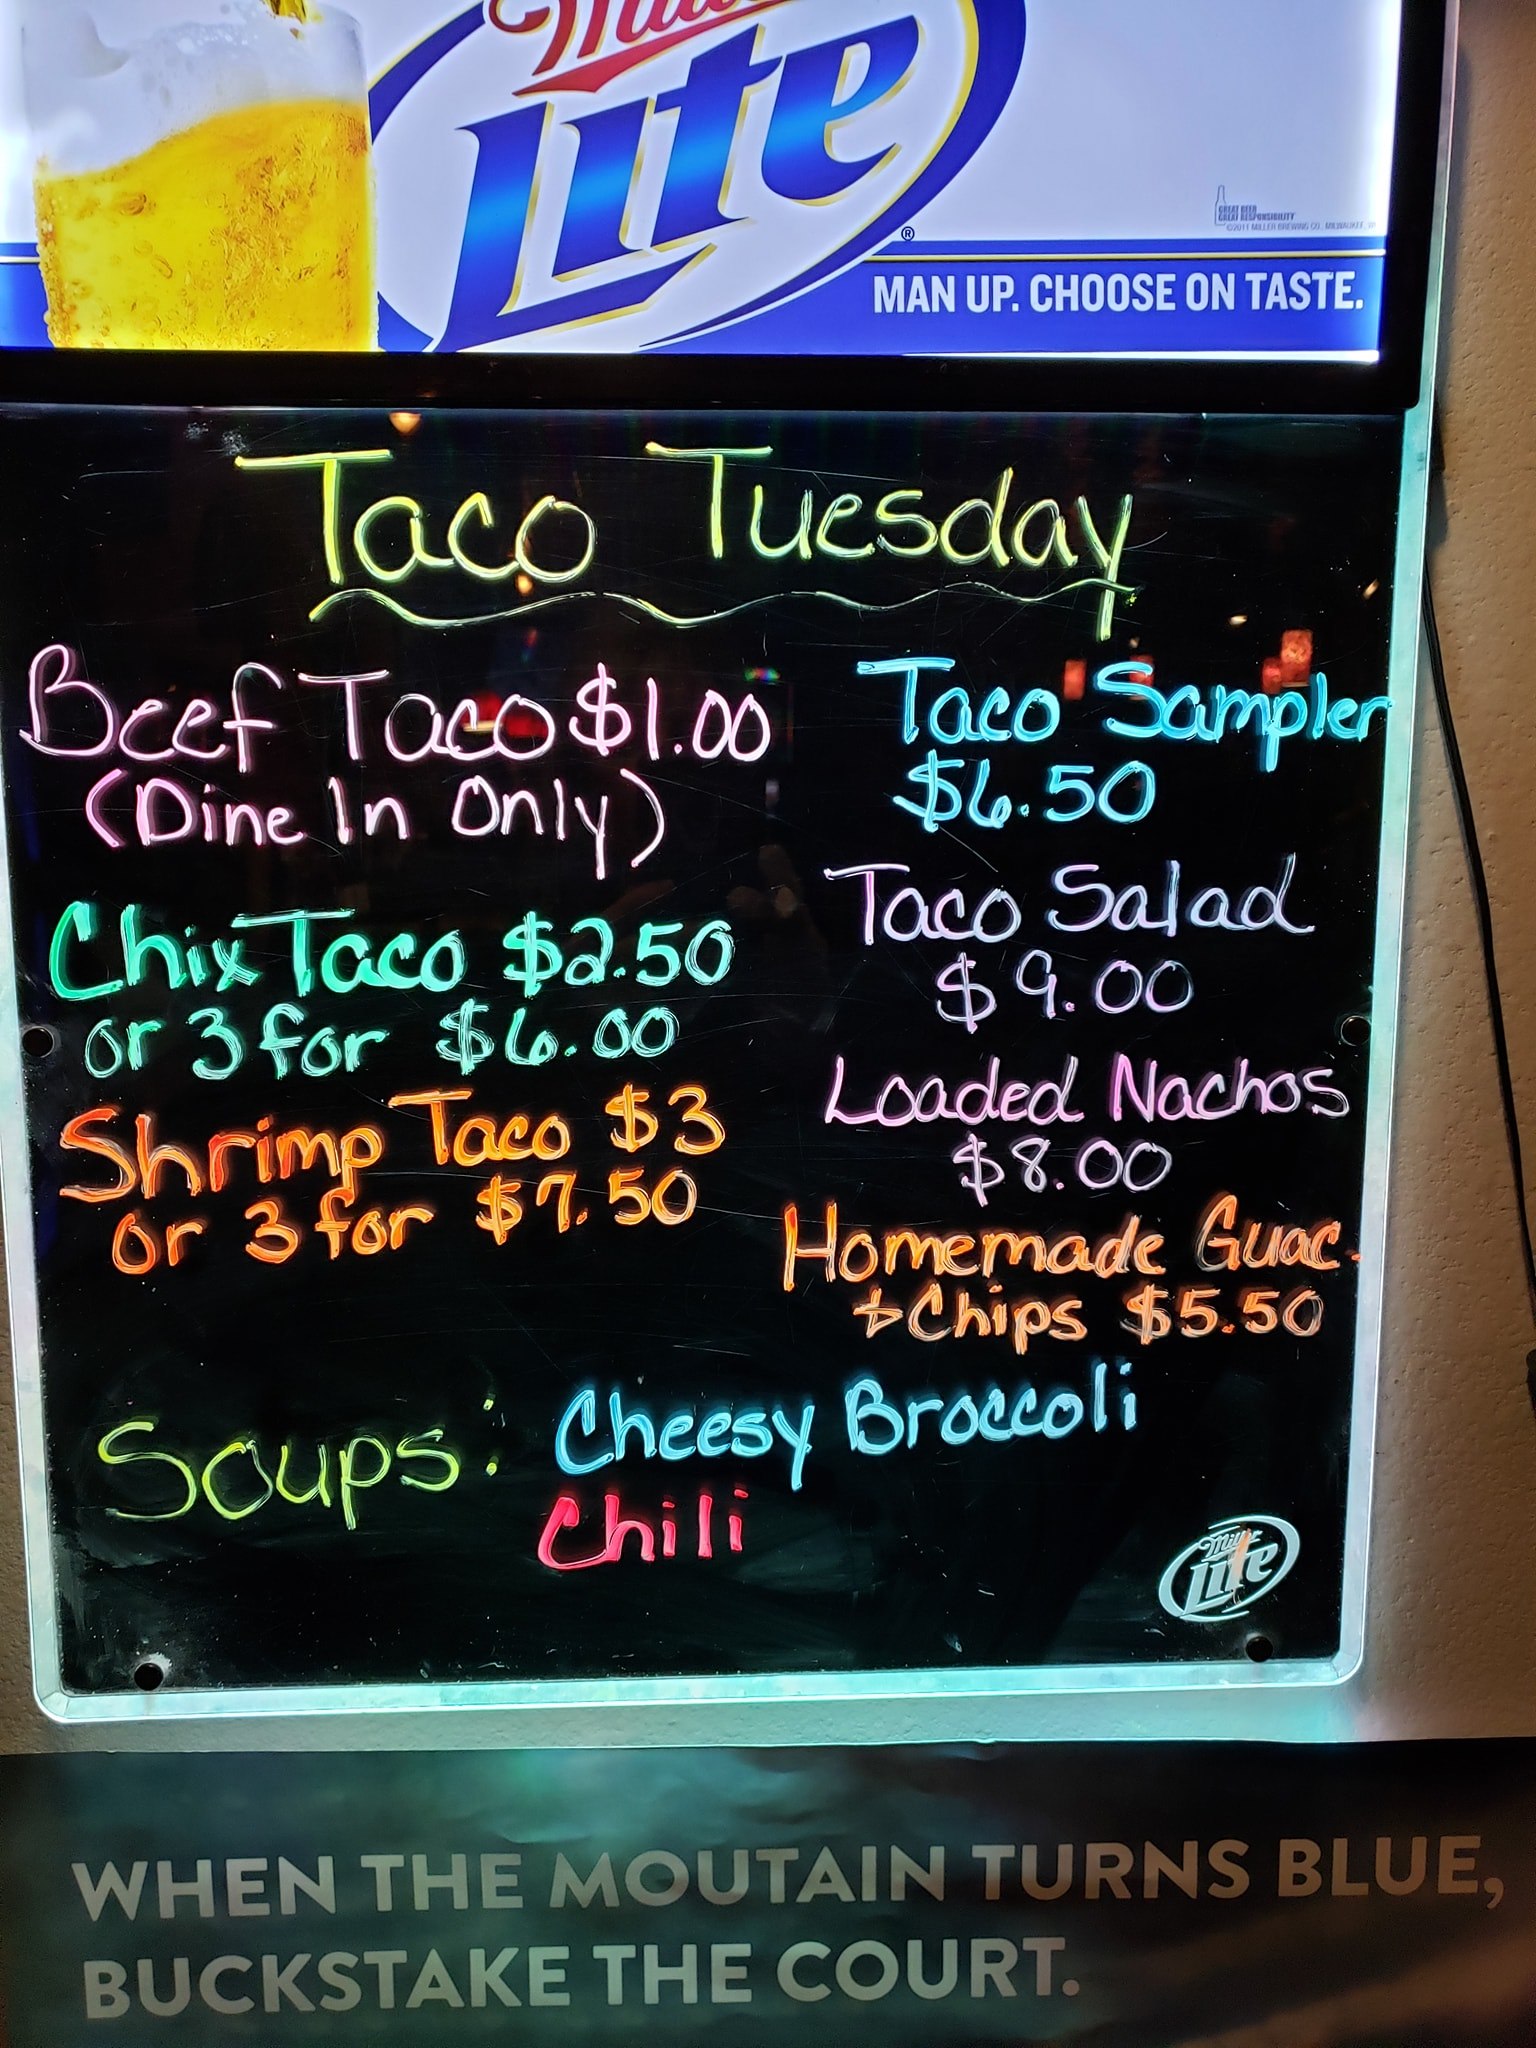 Lite
GREAT BEER
GREAT RESPONSIBILITY
©2011 MILLER BREWING CO., MILWAUKEE, WI
MAN UP. CHOOSE ON TASTE.
Taco Tuesday
Beef Taco $1.00
(Dine In Only)
Chix Taco $2.50
or 3 for $6.00
Shrimp Taco $3
or 3 for $7.50
Taco Sampler
$6.50
Taco Salad
$9.00
Loaded Nachos
$8.00
Homemade Guac.
+ Chips $5.50
Soups: Cheesy Broccoli
Chili
Miller
Lite
WHEN THE MOUTAIN TURNS BLUE,
BUCKSTAKE THE COURT.